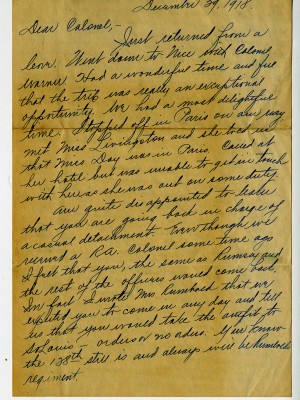 December 29, 1918.
Dear Colonel,-
Just returned from a
leave. Went down to Nice with Colonel
Warner. Had a wonderful time and feel
that the trip was really an exceptional
opportunity. We had a most delightful
time. Stopped off in Paris on our way
met Miss Livingston and she told us
that Miss Day was in Paris. Called at
her hotel but was unable to get in touch
with her as she was out on some duty.
Am quite disappointed to learn
that you are going back in charge of
a casual detachment. Even though we
received a R.A. Colonel some time ago
I felt that you, the same as Rumsey and
the rest of the officers would come back.
In fact I wrote Mrs Rumbold that we
expected you to come in any day and tell
us that you would take the outfit to
St Louis - orders or no orders. You know
the 128th still is and always will be Rumbold
regiment.